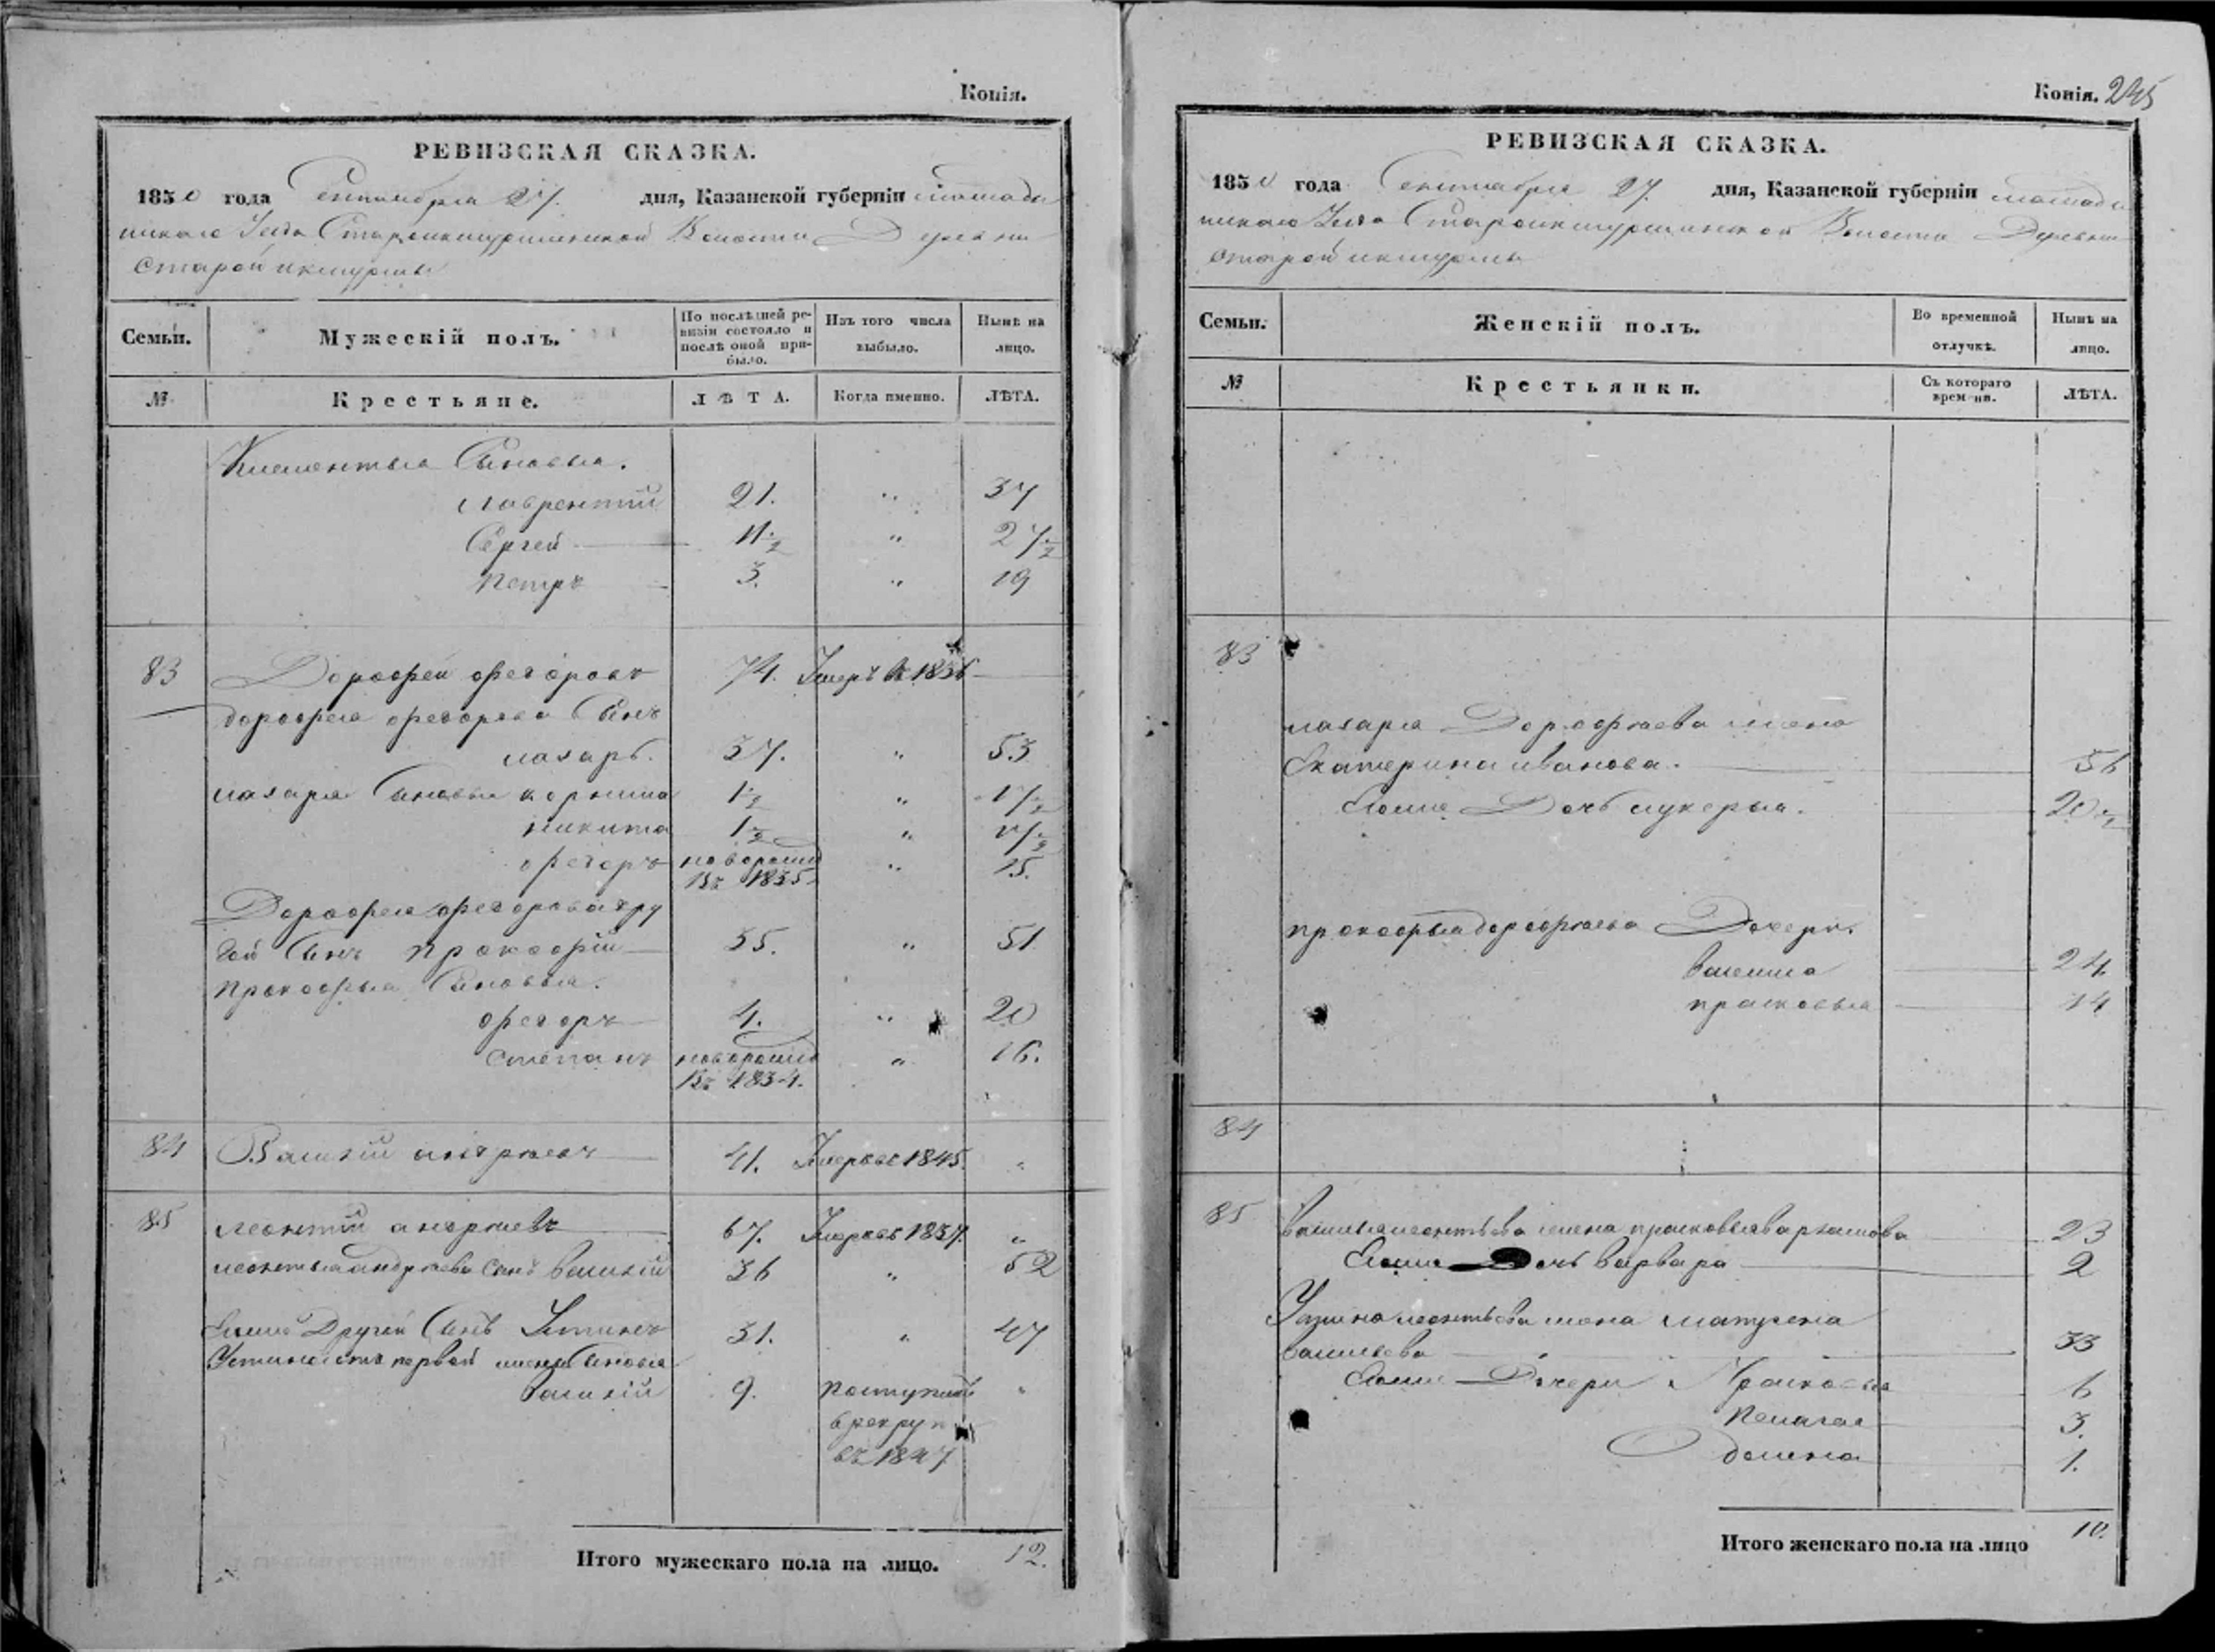 Копія.
РЕВИЗСКАЯ СКАЗКА.
1850 года Сентября 27. дня, Казанской губерніи
Уезда Староиктурминской Волости Деревни
Старой иктурмы
Семьи.
Мужескій полъ.
По послѣдней ре-
визіи состояло и
послѣ оной при-
было.
Изъ того числа
выбыло.
Нынѣ на
лицо.
№
Крестьяне.
ЛѢТА.
Когда именно.
ЛѢТА.
Климентья Сыновья.
лаврентій 21. " 37
Сергей 11½ " 27½
петръ 3. " 19
83 Дорофей федоровъ 74. Умеръ въ 1836
дорофея федорова Сынъ
лазарь. 37. " 53
лазаря Сыновья корнила 1½ " 17½
никита 1½ " 17½
федоръ новорожд " 15.
въ 1835
Дорофея федорова дру
гой Сынъ прокофій 35. " 51
прокофья Сыновья.
федоръ 4. " 20
степанъ новорожд " 16.
въ 1834.
84 Василій андреевъ 41. Умеръ въ 1845. "
85 леонтій андреевъ 67. Умеръ въ 1837. "
леонтья андреева Сынъ василій 36 " 52
Его же Другой Сынъ Устинъ 31. " 47
Устина отъ первой жены Сыновья
василій 9. поступилъ "
в рекруты
въ 1847
Итого мужескаго пола на лицо. 12.
Копія. 245
РЕВИЗСКАЯ СКАЗКА.
1850 года Сентября 27. дня, Казанской губерніи
Уезда Староиктурминской Волости Деревни
Старой иктурмы
Семьи.
Женскій полъ.
Во временной
отлучкѣ.
Нынѣ на
лицо.
№
Крестьянки.
Съ котораго
времени.
ЛѢТА.
83
лазаря Дорофеева жена
Екатерина иванова. 56
Его же Дочь лукерья. 20½
прокофья дорофеева Дочери.
24.
прасковья 14
84
85 василья леонтьева жена прасковья 23
Его же Дочь варвара 2
Устина леонтьева жена матрена
васильева 33
Его же Дочери Прасковья 6
пелагая 3.
1.
Итого женскаго пола на лицо 10.